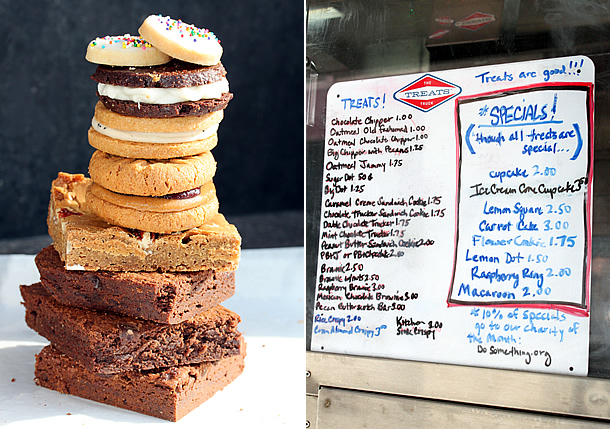 THE
TREATS
TRUCK
Treats are good!!!
TREATS!
Chocolate Chipper 1.00
Oatmeal Old Fashioned 1.00
Oatmeal Chocolate Chipper 1.00
Big Chipper with Pecans 1.25
Oatmeal Jammy 1.75
Sugar Dot 50¢
Big Dot 1.25
Caramel Creme Sandwich Cookie 1.75
Chocolate Trucker Sandwich Cookie 1.75
Double Chocolate Trucker 1.75
Mint Chocolate Trucker 1.75
Peanut Butter Sandwich Cookie 2.00
PB+J or PB+Chocolate 2.00
Brownie 2.50
Brownie w/nuts 2.50
Raspberry Brownie 3.00
Mexican Chocolate Brownie 3.00
Pecan Butterscotch Bar 3.00
Rice Crispy 2.00
Cran Almond Crispy
Kitchen 3.00
Sink Crispy
SPECIALS!
(though all treats are
special...)
cupcake 2.00
Ice Cream Cone Cupcake
Lemon Square 2.50
Carrot Cake 3.00
Flower Cookie 1.75
Lemon Dot 1.50
Raspberry Ring 2.00
Macaroon 2.00
* 10% of specials
go to our charity of
the Month:
DoSomething.org